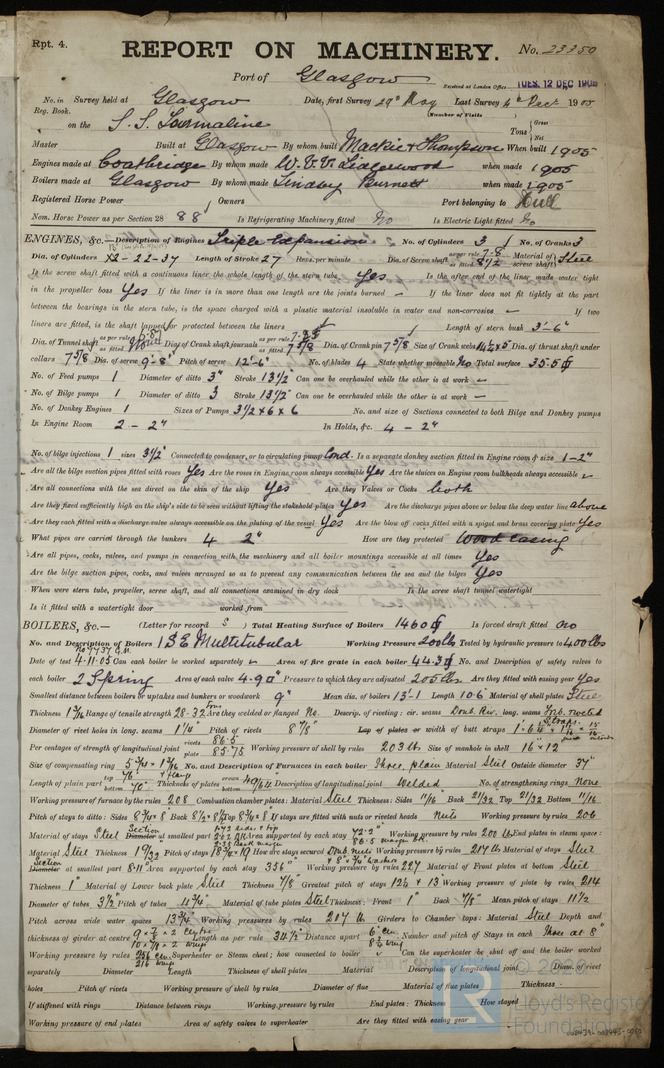 Rpt. 4.
REPORT ON MACHINERY.
No. 23350
Port of Glasgow
Received at London Office TUES. 12 DEC 190
No. in Survey held at Glasgow Date, first Survey 29th May Last Survey 4th Decr 1905
Reg. Book. (Number of Visits)
on the S.S. Tons Gross Net
Master Built at Glasgow By whom built Mackie & Thompson When built 1905
Engines made at Coatbridge By whom made W. V. V. Lidgerwood when made 1905
Boilers made at Glasgow By whom made Lindsay Burnett when made 1905
Registered Horse Power Owners Port belonging to Hull
Nom. Horse Power as per Section 28 88 Is Refrigerating Machinery fitted No Is Electric Light fitted No
ENGINES, &c.—Description of Engines Triple Expansion No. of Cylinders 3 No. of Cranks 3
Dia. of Cylinders 12-22-37 Length of Stroke 27 Revs. per minute Dia. of Screw shaft as per rule 7.8 as fitted 8 1/2 Material of screw shaft Steel
Is the screw shaft fitted with a continuous liner the whole length of the stern tube Yes Is the after end of the liner made water tight
in the propeller boss Yes If the liner is in more than one length are the joints burned — If the liner does not fit tightly at the part
between the bearings in the stern tube, is the space charged with a plastic material insoluble in water and non-corrosive — If two
liners are fitted, is the shaft lapped or protected between the liners Length of stern bush 3'-6"
Dia. of Tunnel shaft as per rule 6.87 as fitted Dia. of Crank shaft journals as per rule as fitted 7 5/8 Dia. of Crank pin 7 5/8 Size of Crank webs 14 1/2 x 5 Dia. of thrust shaft under
collars 7 5/8 Dia. of screw 9'-8" Pitch of screw 12'-6" No. of blades 4 State whether moveable No Total surface 35.5
No. of Feed pumps 1 Diameter of ditto 3" Stroke 13 1/2 Can one be overhauled while the other is at work —
No. of Bilge pumps 1 Diameter of ditto 3 Stroke 13 1/2 Can one be overhauled while the other is at work —
No. of Donkey Engines 1 Sizes of Pumps 3 1/2 x 6 x 6 No. and size of Suctions connected to both Bilge and Donkey pumps
In Engine Room 2 - 2" In Holds, &c. 4 - 2"
No. of bilge injections 1 sizes 3 1/2" Connected to condenser, or to circulating pump Cond. Is a separate donkey suction fitted in Engine room & size 1-2"
Are all the bilge suction pipes fitted with roses Yes Are the roses in Engine room always accessible Yes Are the sluices on Engine room bulkheads always accessible
Are all connections with the sea direct on the skin of the ship Yes Are they Valves or Cocks both
Are they fixed sufficiently high on the ship's side to be seen without lifting the stokehold plates Yes Are the discharge pipes above or below the deep water line above
Are they each fitted with a discharge valve always accessible on the plating of the vessel Yes Are the blow off cocks fitted with a spigot and brass covering plate Yes
What pipes are carried through the bunkers 4 2" How are they protected Wood casing
Are all pipes, cocks, valves, and pumps in connection with the machinery and all boiler mountings accessible at all times Yes
Are the bilge suction pipes, cocks, and valves arranged so as to prevent any communication between the sea and the bilges Yes
When were stern tube, propeller, screw shaft, and all connections examined in dry dock Is the screw shaft tunnel watertight
Is it fitted with a watertight door worked from
BOILERS, &c.— (Letter for record S) Total Heating Surface of Boilers 1460 Is forced draft fitted No
No. and Description of Boilers 1 S.E. Multitubular Working Pressure 200 lbs Tested by hydraulic pressure to 400 lbs
No 7737 G.M.
Date of test 4.11.05 Can each boiler be worked separately — Area of fire grate in each boiler 44.3 No. and Description of safety valves to
each boiler 2 Spring Area of each valve 4.90" Pressure to which they are adjusted 205 lbs Are they fitted with easing gear Yes
Smallest distance between boilers or uptakes and bunkers or woodwork 9" Mean dia. of boilers 13'-1 Length 10-6 Material of shell plates Steel
Thickness 1 3/16 Range of tensile strength 28-32 tons Are they welded or flanged No Descrip. of riveting: cir. seams Doub. Riv. long. seams
Diameter of rivet holes in long. seams 1 1/4" Pitch of rivets 8 7/8" Lap of plates or width of butt straps
Per centages of strength of longitudinal joint rivets 86.5 plate 85.75 Working pressure of shell by rules 203 lbs Size of manhole in shell 16 x 12
Size of compensating ring No. and Description of Furnaces in each boiler Three, plain Material Steel Outside diameter 37"
Length of plain part top 76" bottom 70" Thickness of plates crown bottom Description of longitudinal joint Welded No. of strengthening rings None
Working pressure of furnace by the rules 208 Combustion chamber plates: Material Steel Thickness: Sides 11/16 Back 21/32 Top 21/32 Bottom 11/16
Pitch of stays to ditto: Sides 8 3/4 x 8 Back 8 1/2 x 8 1/2 Top 8 3/4 x 8 If stays are fitted with nuts or riveted heads Nuts Working pressure by rules 206
Material of stays Steel Section Diameter at smallest part Area supported by each stay 72.2" Working pressure by rules 200 lbs End plates in steam space:
Material Steel Thickness 1 9/32 Pitch of stays 18 3/4 x 19 How are stays secured Doub. nuts Working pressure by rules 217 lbs Material of stays Steel
Section Diameter at smallest part 8.11" Area supported by each stay 356" Working pressure by rules 227 Material of Front plates at bottom Steel
Thickness 1" Material of Lower back plate Steel Thickness 7/8" Greatest pitch of stays 12 1/2 x 13 Working pressure of plate by rules 214
Diameter of tubes 3 1/2 Pitch of tubes 4 3/4" Material of tube plates Steel Thickness: Front 1" Back 7/8" Mean pitch of stays 11 1/2
Pitch across wide water spaces 13 3/4" Working pressures by rules 207 lbs Girders to Chamber tops: Material Steel Depth and
thickness of girder at centre 9 x 7/8 x 2 Centre 10 x 7/8 x 2 wing Length as per rule 34 1/2 Distance apart Number and pitch of Stays in each Three at 8"
Working pressure by rules 216 wing Superheater or Steam chest; how connected to boiler Can the superheater be shut off and the boiler worked
separately Diameter Length Thickness of shell plates Material Description of longitudinal joint Diam. of rivet
holes Pitch of rivets Working pressure of shell by rules Diameter of flue Material of flue plates Thickness
If stiffened with rings Distance between rings Working pressure by rules End plates: Thickness How stayed
Working pressure of end plates Area of safety valves to superheater Are they fitted with easing gear
© 2020
LR
Lloyd's Register
Foundation